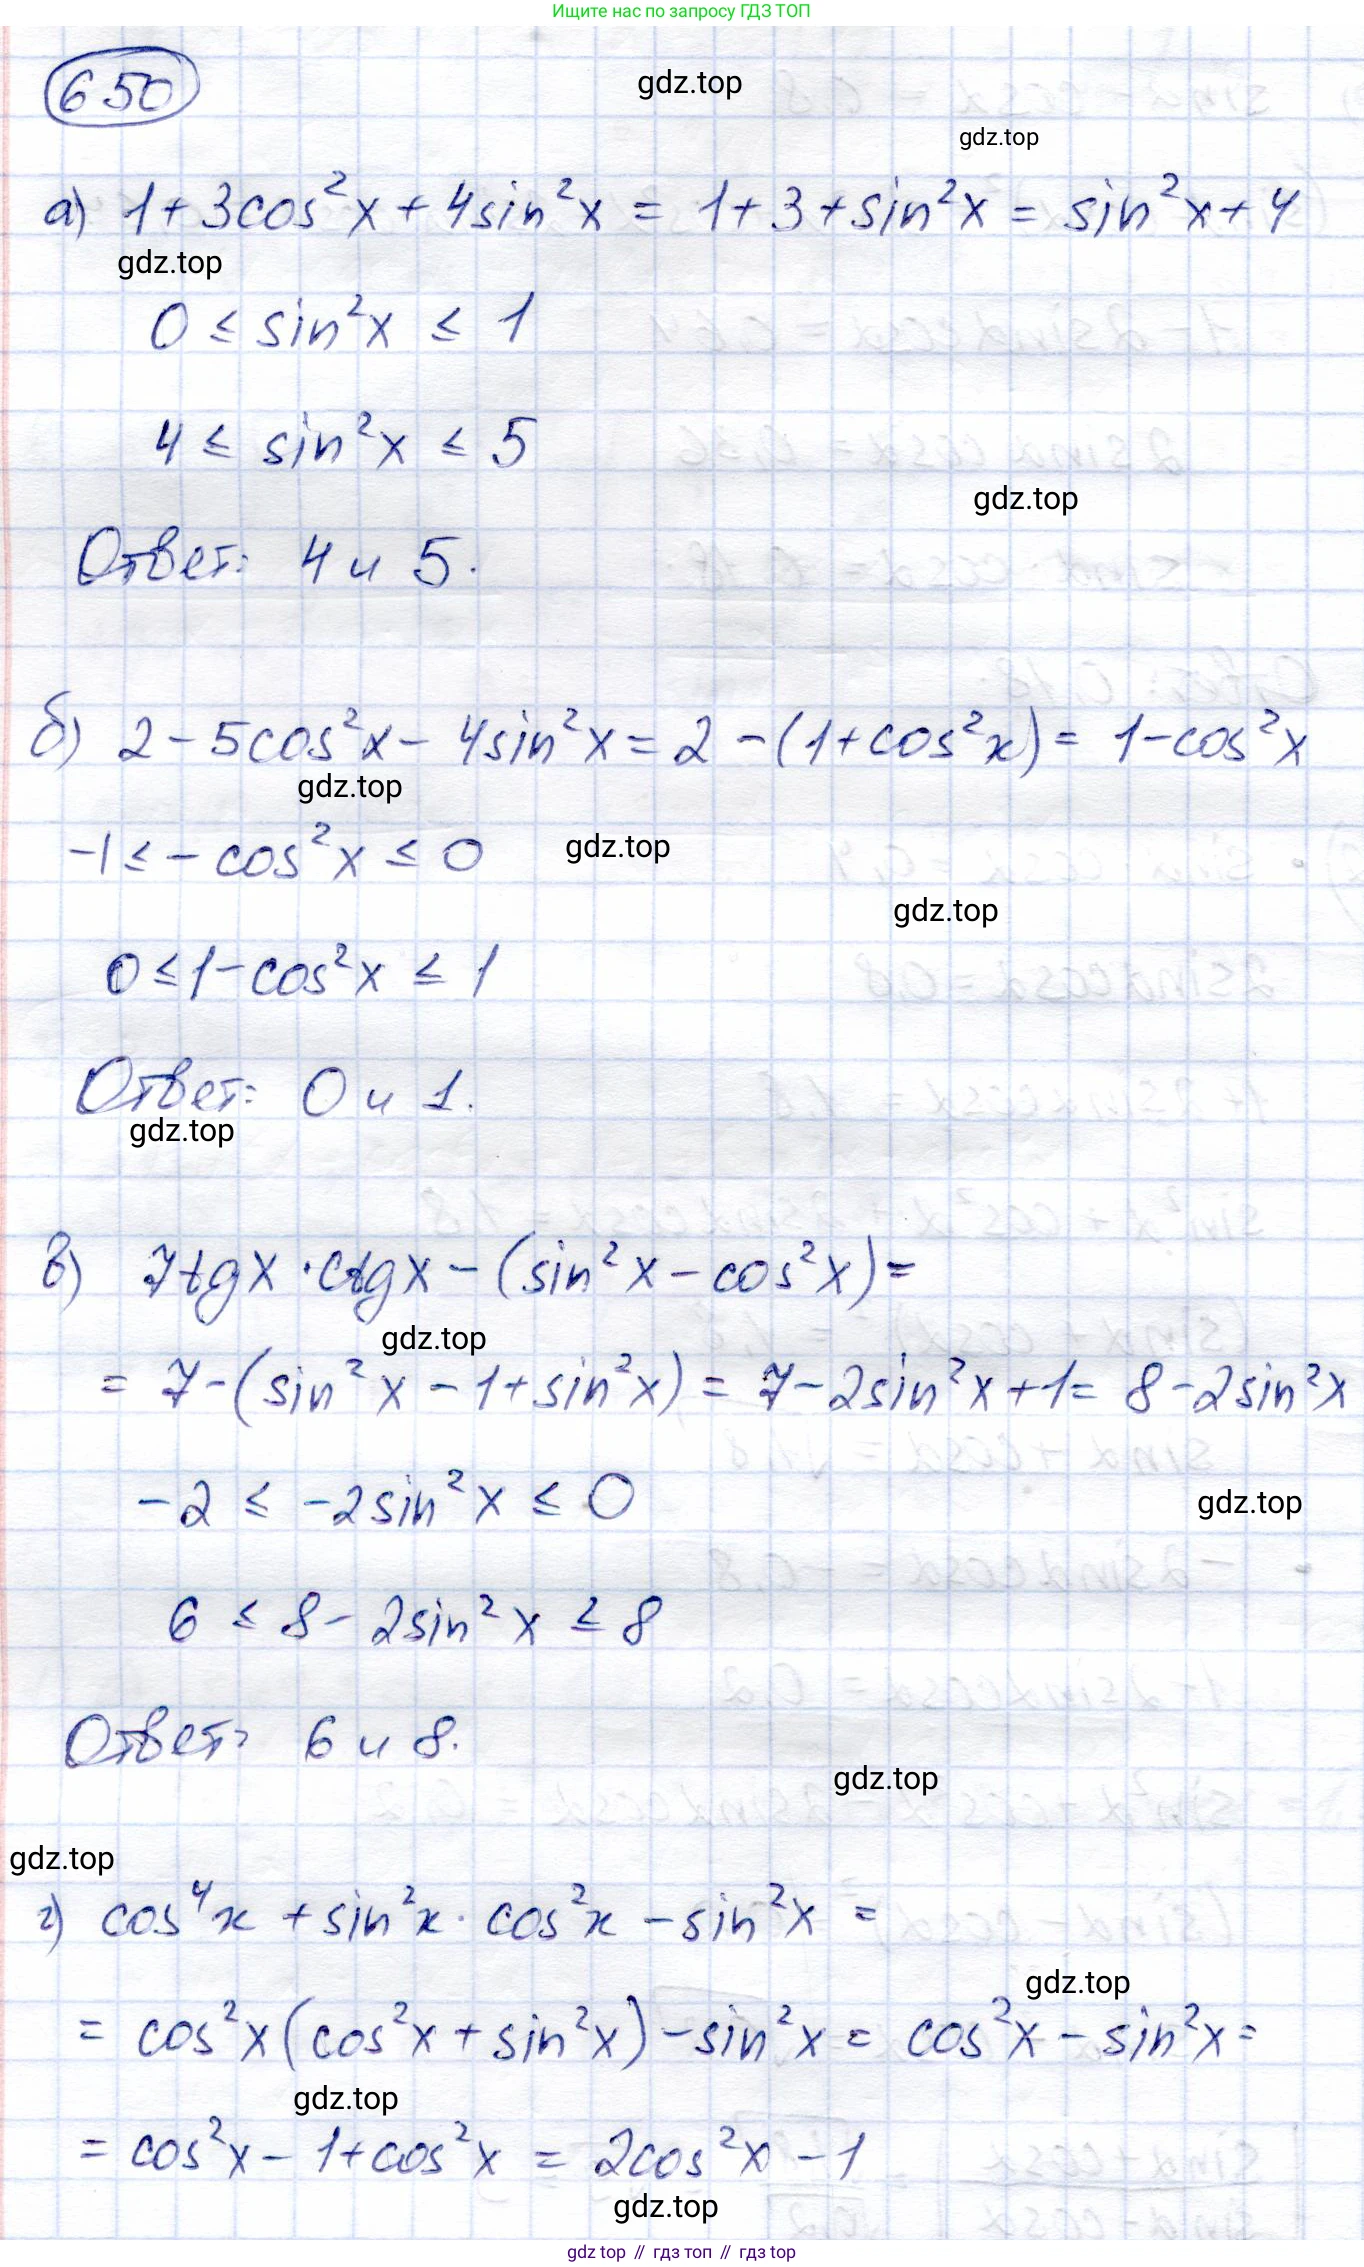 Ищите нас по запросу ГДЗ ТОП
650
gdz.top
gdz.top
а) 1+3cos²x+4sin²x = 1+3+sin²x = sin²x+4
gdz.top
0 ≤ sin²x ≤ 1
4 ≤ sin²x ≤ 5
gdz.top
Ответ: 4 и 5.
б) 2-5cos²x-4sin²x=2-(1+cos²x)= 1-cos²x
gdz.top
-1 ≤ -cos²x ≤ 0
gdz.top
gdz.top
0≤1-cos²x ≤ 1
Ответ: 0 и 1.
gdz.top
в) 7tgx·ctgx-(sin²x-cos²x)=
gdz.top
= 7-(sin²x-1+sin²x)= 7-2sin²x+1= 8-2sin²x
-2 ≤ -2sin²x ≤ 0
gdz.top
6 ≤ 8-2sin²x ≤ 8
Ответ: 6 и 8.
gdz.top
gdz.top
г) cos⁴x+sin²x·cos²x-sin²x =
gdz.top
= cos²x(cos²x+sin²x)-sin²x= cos²x-sin²x=
gdz.top
= cos²x-1+cos²x = 2cos²x-1
gdz.top
gdz top // гдз топ // gdz top